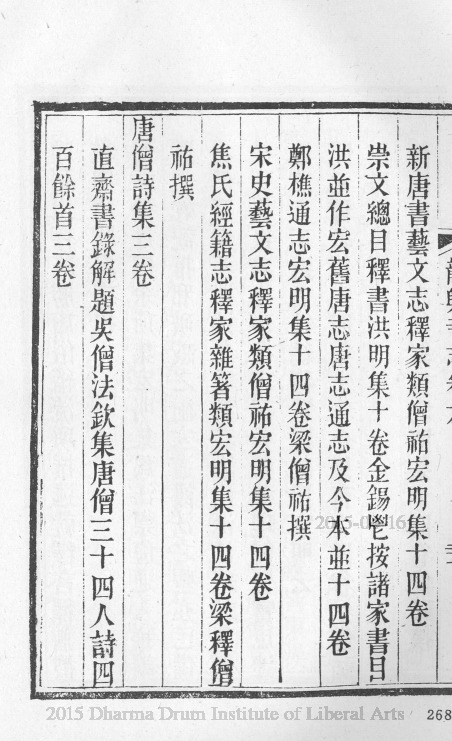 新唐書藝文志釋家類僧祐宏明集十四卷
崇文總目釋書洪明集十卷金錫鬯按諸家書目
洪並作宏舊唐志唐志通志及今本並十四卷
鄭樵通志宏明集十四卷梁僧祐撰
宋史藝文志釋家類僧祐宏明集十四卷
焦氏經籍志釋家雜箸類宏明集十四卷梁釋僧
祐撰
唐僧詩集三卷
直齋書錄解題吳僧法欽集唐僧三十四人詩四
百餘首三卷
2015 Dharma Drum Institute of Liberal Arts
268